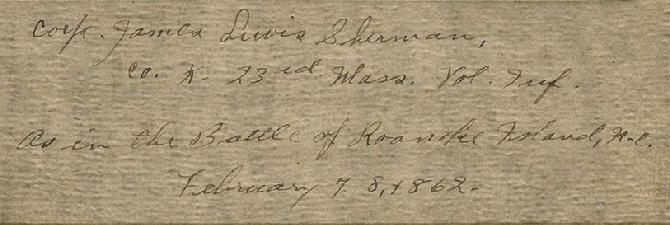 Corp. James Lewis Sherman,
Co. K. 23rd Mass. Vol. Inf.
As in the Battle of Roanoke Island, N.C.
February 7 8, 1862.